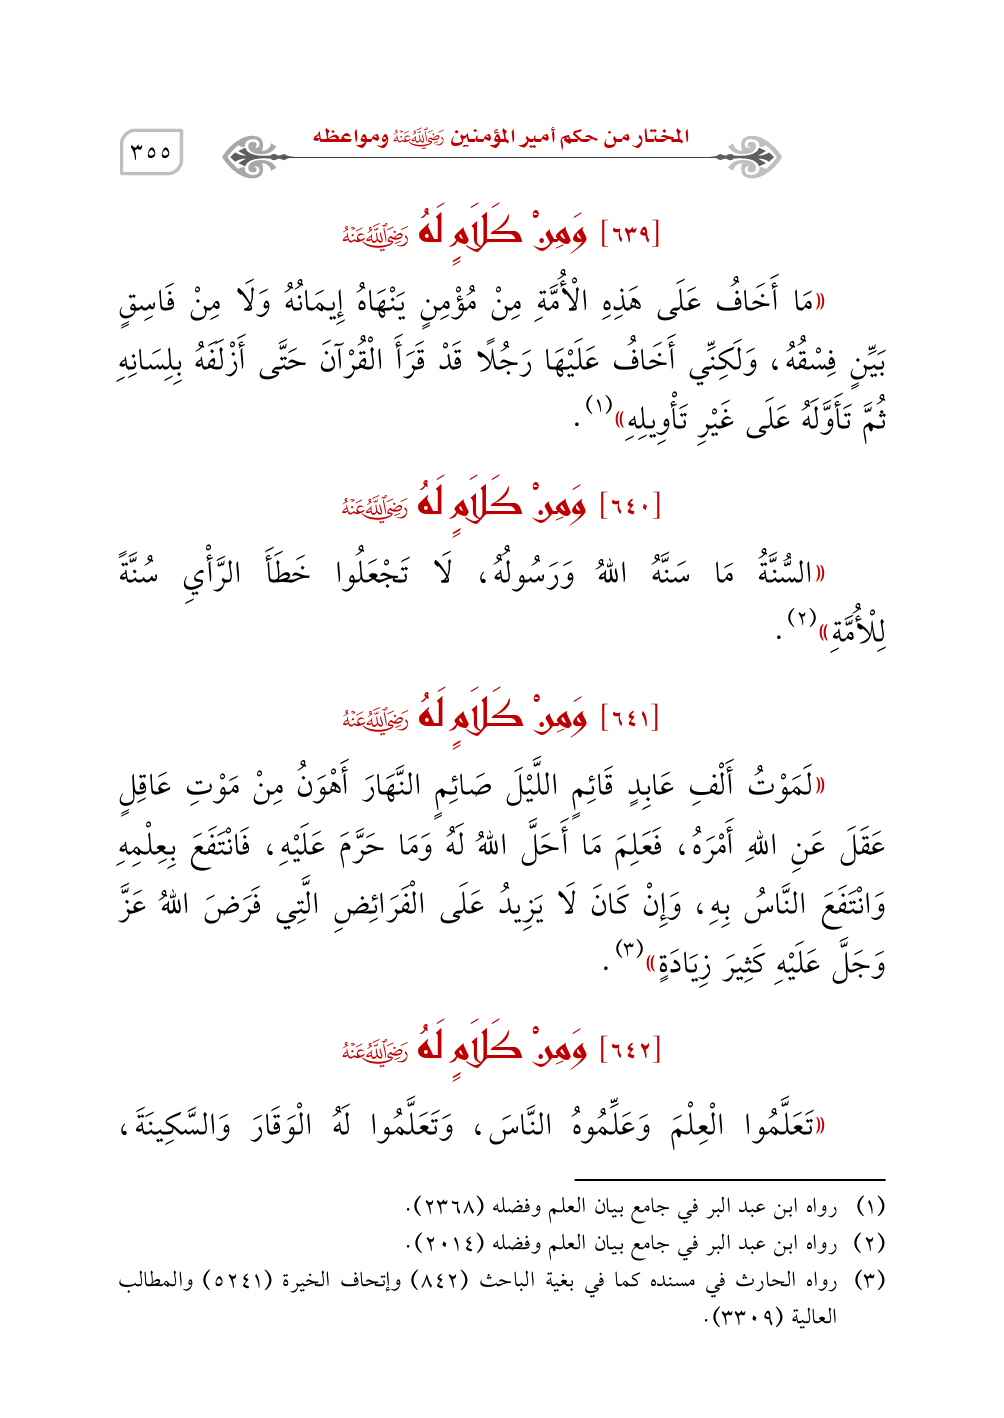 المختار من حكم أمير المؤمنين رَضِيَ اللَّهُ عَنْهُ ومواعظه
٣٥٥
[٦٣٩] وَمِنْ كَلَامٍ لَهُ رَضِيَ اللَّهُ عَنْهُ
«مَا أَخَافُ عَلَى هَذِهِ الْأُمَّةِ مِنْ مُؤْمِنٍ يَنْهَاهُ إِيمَانُهُ وَلَا مِنْ فَاسِقٍ
بَيِّنٍ فِسْقُهُ، وَلَكِنِّي أَخَافُ عَلَيْهَا رَجُلًا قَدْ قَرَأَ الْقُرْآنَ حَتَّى أَزْلَفَهُ بِلِسَانِهِ
ثُمَّ تَأَوَّلَهُ عَلَى غَيْرِ تَأْوِيلِهِ»(١).
[٦٤٠] وَمِنْ كَلَامٍ لَهُ رَضِيَ اللَّهُ عَنْهُ
«السُّنَّةُ مَا سَنَّهُ اللهُ وَرَسُولُهُ، لَا تَجْعَلُوا خَطَأَ الرَّأْيِ سُنَّةً
لِلْأُمَّةِ»(٢).
[٦٤١] وَمِنْ كَلَامٍ لَهُ رَضِيَ اللَّهُ عَنْهُ
«لَمَوْتُ أَلْفِ عَابِدٍ قَائِمٍ اللَّيْلَ صَائِمٍ النَّهَارَ أَهْوَنُ مِنْ مَوْتِ عَاقِلٍ
عَقَلَ عَنِ اللهِ أَمْرَهُ، فَعَلِمَ مَا أَحَلَّ اللهُ لَهُ وَمَا حَرَّمَ عَلَيْهِ، فَانْتَفَعَ بِعِلْمِهِ
وَانْتَفَعَ النَّاسُ بِهِ، وَإِنْ كَانَ لَا يَزِيدُ عَلَى الْفَرَائِضِ الَّتِي فَرَضَ اللهُ عَزَّ
وَجَلَّ عَلَيْهِ كَثِيرَ زِيَادَةٍ»(٣).
[٦٤٢] وَمِنْ كَلَامٍ لَهُ رَضِيَ اللَّهُ عَنْهُ
«تَعَلَّمُوا الْعِلْمَ وَعَلِّمُوهُ النَّاسَ، وَتَعَلَّمُوا لَهُ الْوَقَارَ وَالسَّكِينَةَ،
(١) رواه ابن عبد البر في جامع بيان العلم وفضله (٢٣٦٨).
(٢) رواه ابن عبد البر في جامع بيان العلم وفضله (٢٠١٤).
(٣) رواه الحارث في مسنده كما في بغية الباحث (٨٤٢) وإتحاف الخيرة (٥٢٤١) والمطالب
العالية (٣٣٠٩).